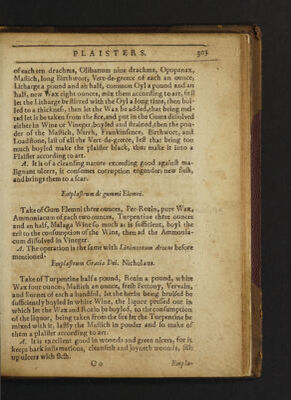 PLAISTERS. 303
of each ten drachms, Olibanum nine drachms, Opopanax,
Mastich, long Birthwort, Vert-de-greece of each an ounce,
Litharge a pound and an half, common Oyl a pound and an
half, new Wax eight ounces, mix them according to art, first
let the Litharge be stirred with the Oyl a long time, then boi-
led to a thickness, then let the Wax be added, that being mel-
ted let it be taken from the fire, and put in the Gums dissolved
either in Wine or Vineger, boyled and strained, then the pou-
der of the Mastich, Myrrh, Frankinsence, Birthwort, and
Loadstone, last of all the Vert-de-greece, lest that being too
much boyled make the plaister black, thus make it into a
Plaister according to art.
A. It is of a cleansing nature exceeding good against ma-
lignant ulcers, it consumes corruption engenders new flesh,
and brings them to a scar.
Emplastrum de gummi Elemni.
Take of Gum Elemni three ounces, Per-Rozin, pure Wax,
Ammoniacum of each two ounces, Turpentine three ounces
and an half, Malaga Wine so much as is sufficient, boyl the
rest to the consumption of the Wine, then ad the Ammonia-
cum dissolved in Vineger.
A. The operation is the same with Linimentum Arcens before
mentioned.
Emplastrum Gratia Dei. Nicholaus.
Take of Turpentine half a pound, Rozin a pound, white
Wax four ounces, Mastich an ounce, fresh Bettony, Vervain,
and Burnet of each a handful, let the herbs being bruised be
sufficiently boyled in white Wine, the liquor pressed out in
which let the Wax and Rozin be boyled, to the consumption
of the liquor, being taken from the fire let the Turpentine be
mixed with it, lastly the Mastich in pouder and so make of
them a plaister according to art.
A. It is excellent good in wounds and green ulcers, for it
keeps back inflamations, cleanseth and joyneth wounds, fills
up ulcers with flesh.
O o Emplas-